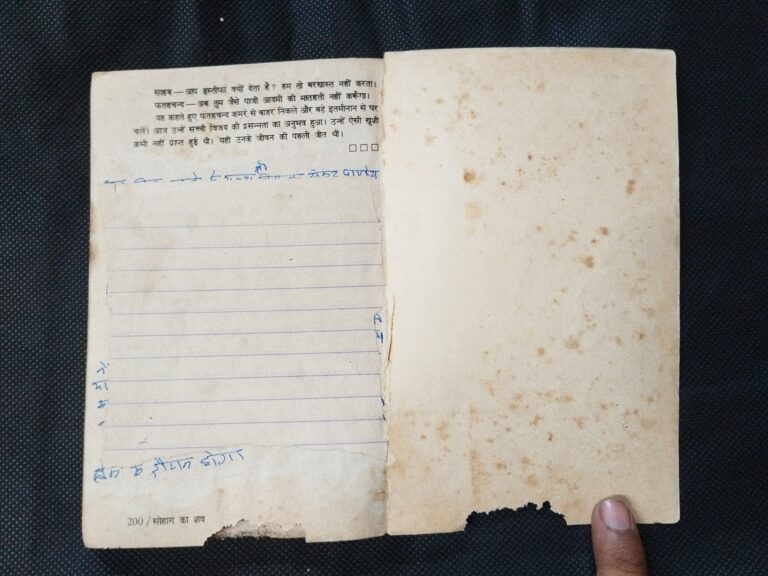 साहब—आप इस्तीफा क्यों देता है? हम तो बरखास्त नहीं करता।
फतहचन्द—अब तुम जैसे पाजी आदमी की मातहती नहीं करूँगा।
यह कहते हुए फतहचन्द कमरे से बाहर निकले और बड़े इतमीनान से घर
चले। आज उन्हें सच्ची विजय की प्रसन्नता का अनुभव हुआ। उन्हें ऐसी खुशी
कभी नहीं प्राप्त हुई थी। यही उनके जीवन की पहली जीत थी।
को
पाण्डेय
के दौरान होगा
200 / सोहाग का शव